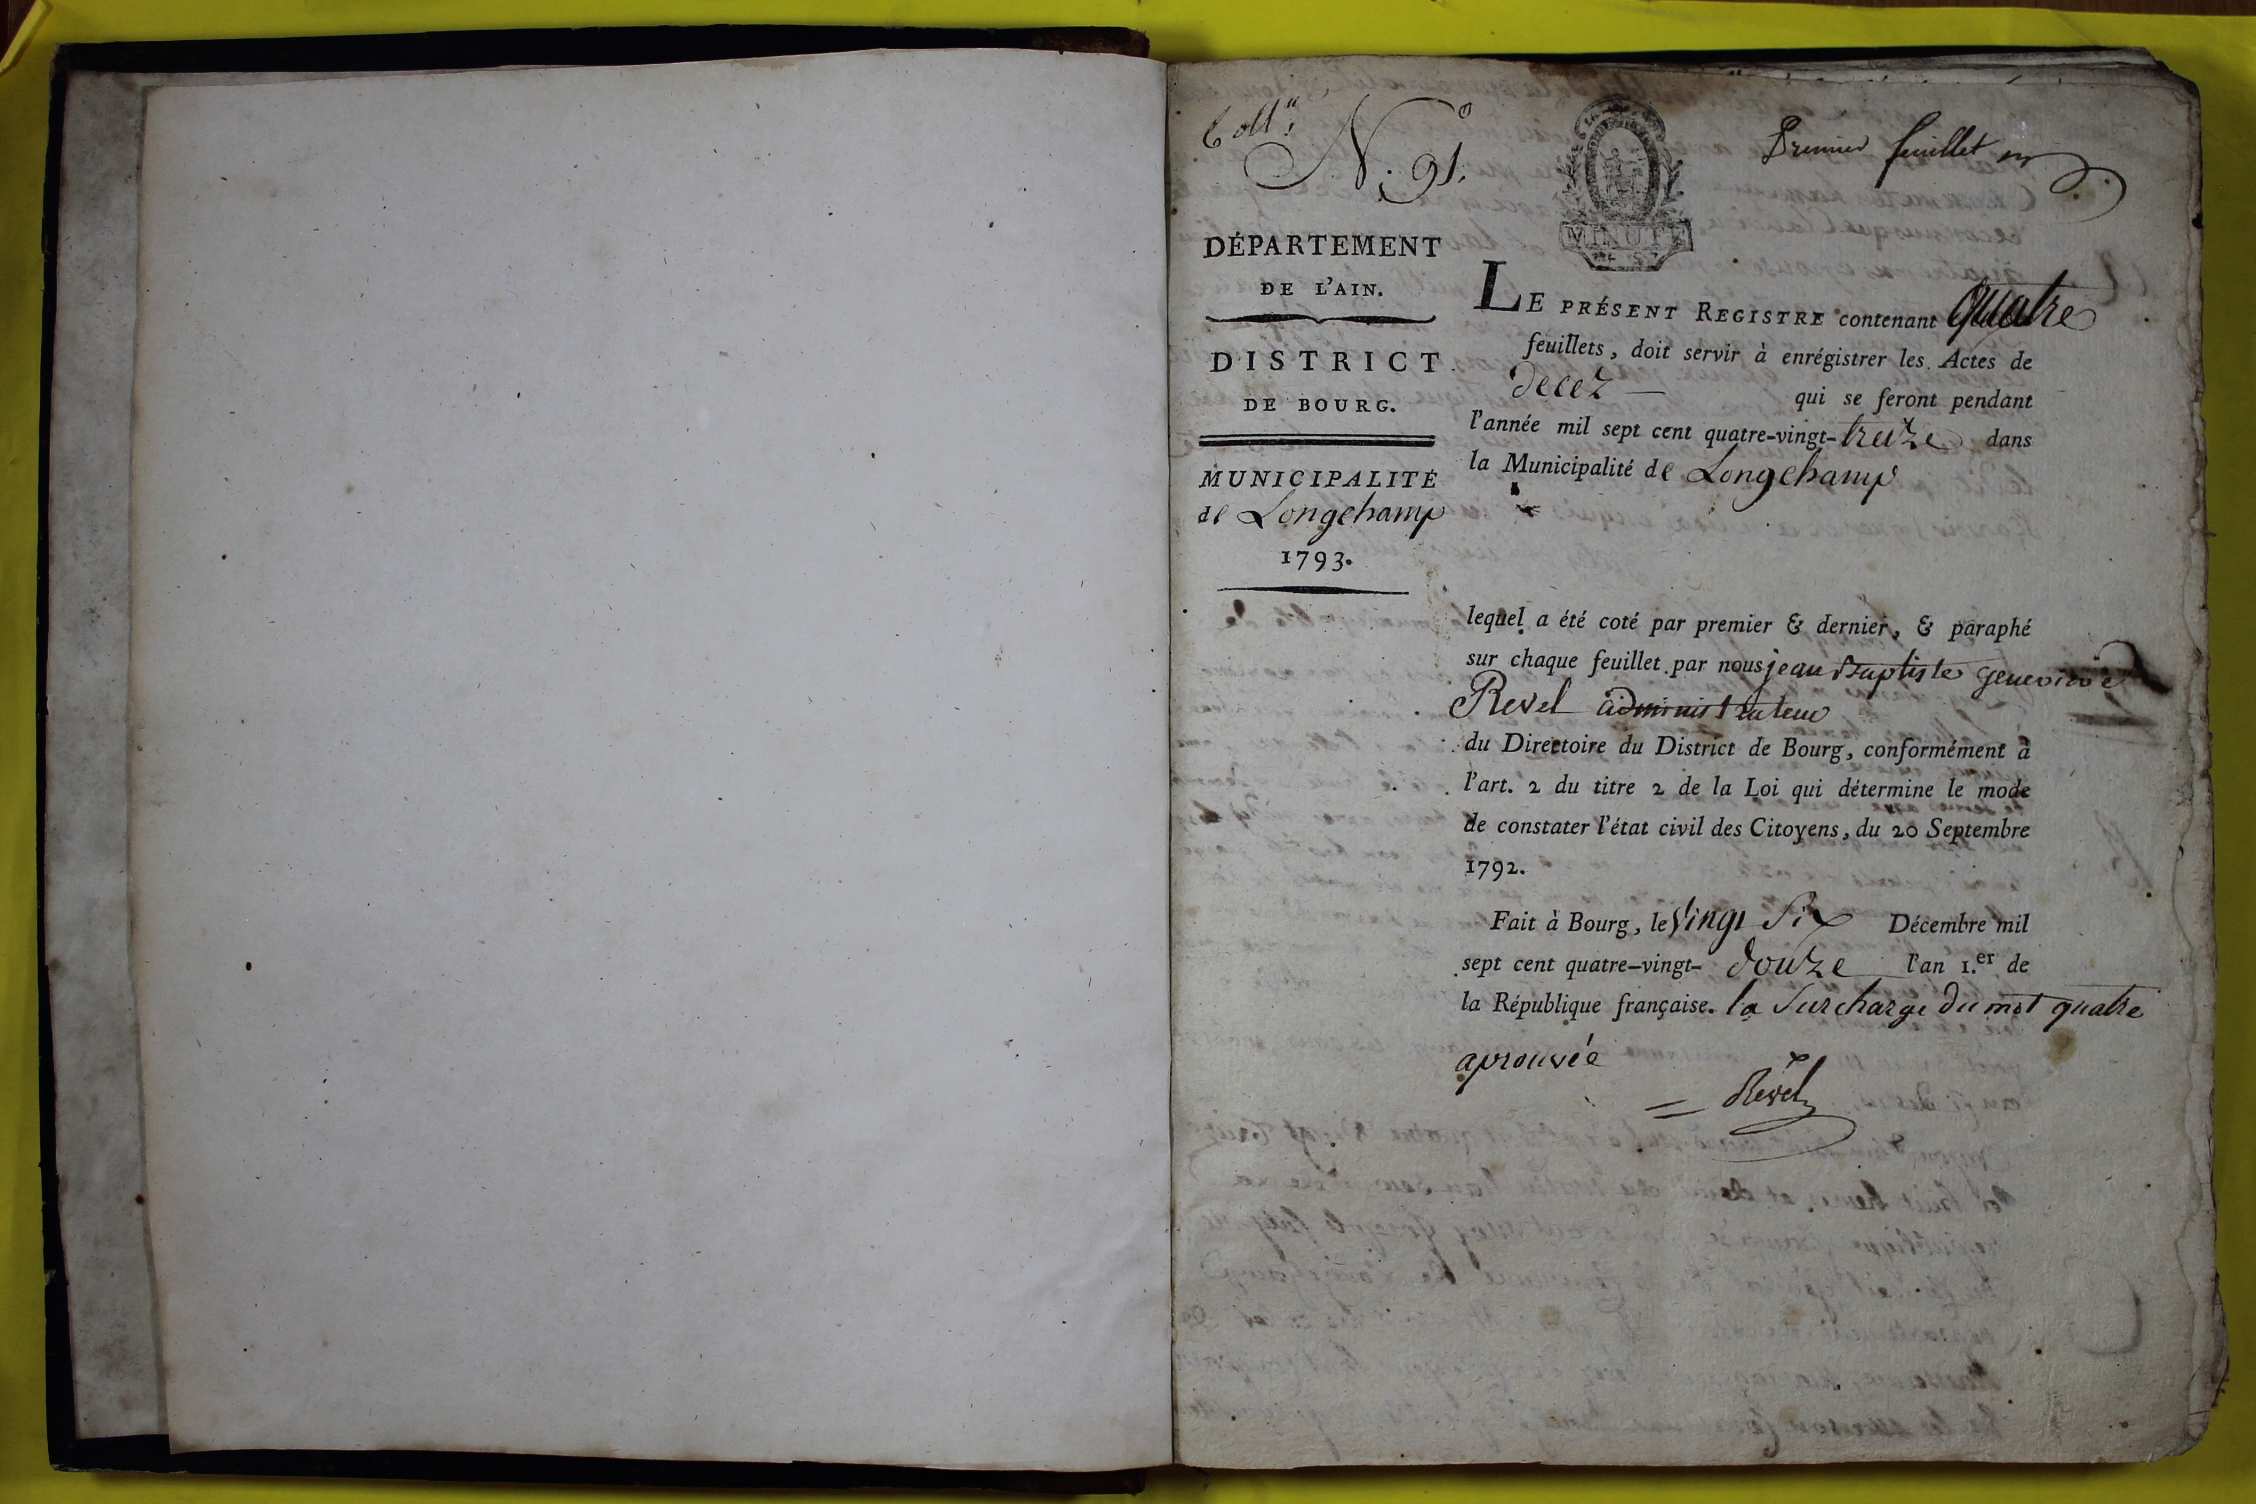 Coll.n
N.° 91.
Premier feuillet
MINUTE
DÉPARTEMENT
DE L'AIN.
DISTRICT
DE BOURG.
MUNICIPALITÉ
de Longchamp
1793.
LE PRÉSENT REGISTRE contenant quatre
feuillets, doit servir à enrégistrer les Actes de
decez — qui se feront pendant
l'année mil sept cent quatre-vingt-treize dans
la Municipalité de Longchamp
lequel a été coté par premier & dernier, & paraphé
sur chaque feuillet par nous jean Baptiste genevieve
Revel administrateur
du Directoire du District de Bourg, conformément à
l'art. 2 du titre 2 de la Loi qui détermine le mode
de constater l'état civil des Citoyens, du 20 Septembre
1792.
Fait à Bourg, le Vingt Six Décembre mil
sept cent quatre-vingt-douze l'an 1.er de
la République française. la Surcharge du mot quatre
aprouvée
Revel